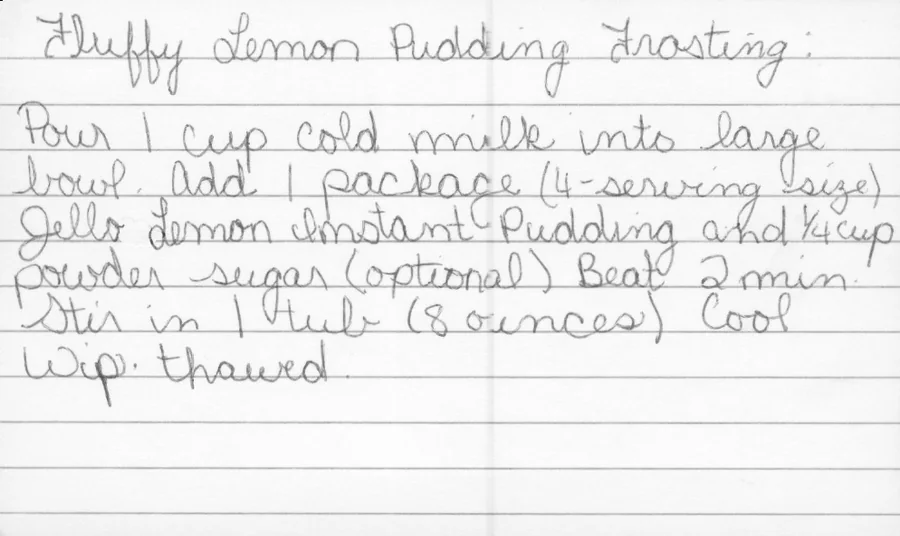 Fluffy Lemon Pudding Frosting:
Pour 1 cup cold milk into large
bowl. Add 1 package (4-serving size)
Jello Lemon Instant Pudding and 1/4 cup
powder sugar (optional) Beat 2 min.
Stir in 1 tub (8 ounces) Cool
Wip. thawed.